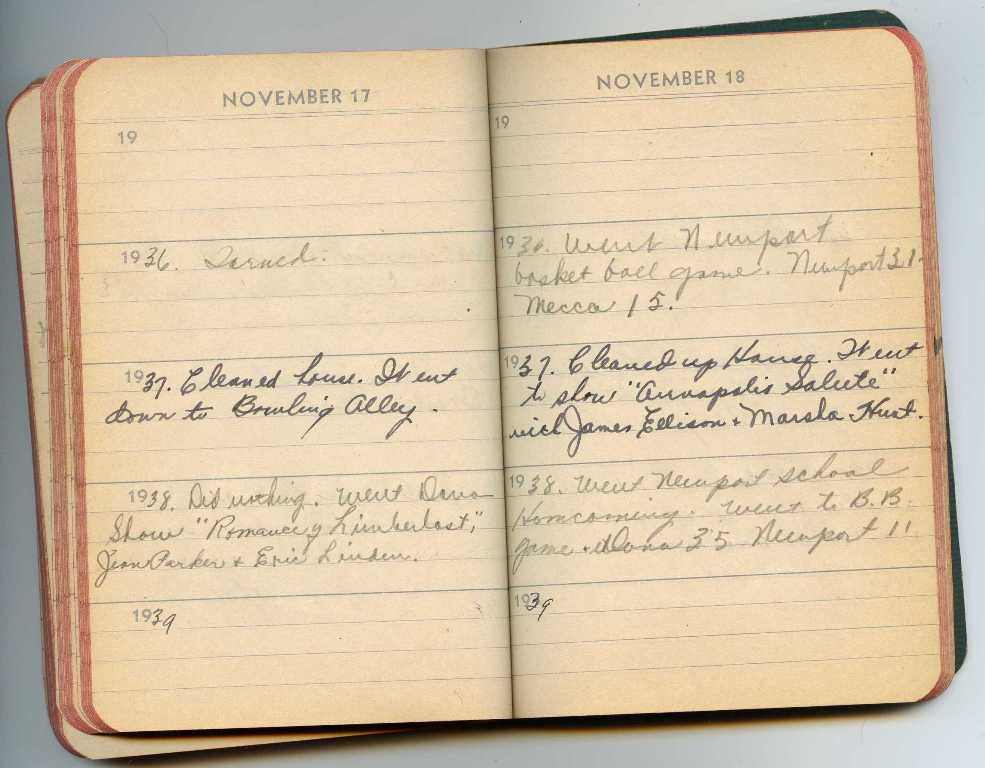 NOVEMBER 17
19
1936.
1937. Cleaned house. Went
down to Bowling Alley.
1938. Did nothing. Went Dana
Show "Romance of Limberlost,"
Jean Parker + Eric Linden.
1939
NOVEMBER 18
19
1936. Went Newport
basket ball game. Newport 31.
Mecca 15.
1937. Cleaned up House. Went
to show "Annapolis Salute"
with James Ellison + Marsha Hunt.
1938. Went Newport School
Homcoming. Went to B.B.
game. Dana 35 Newport 11
1939